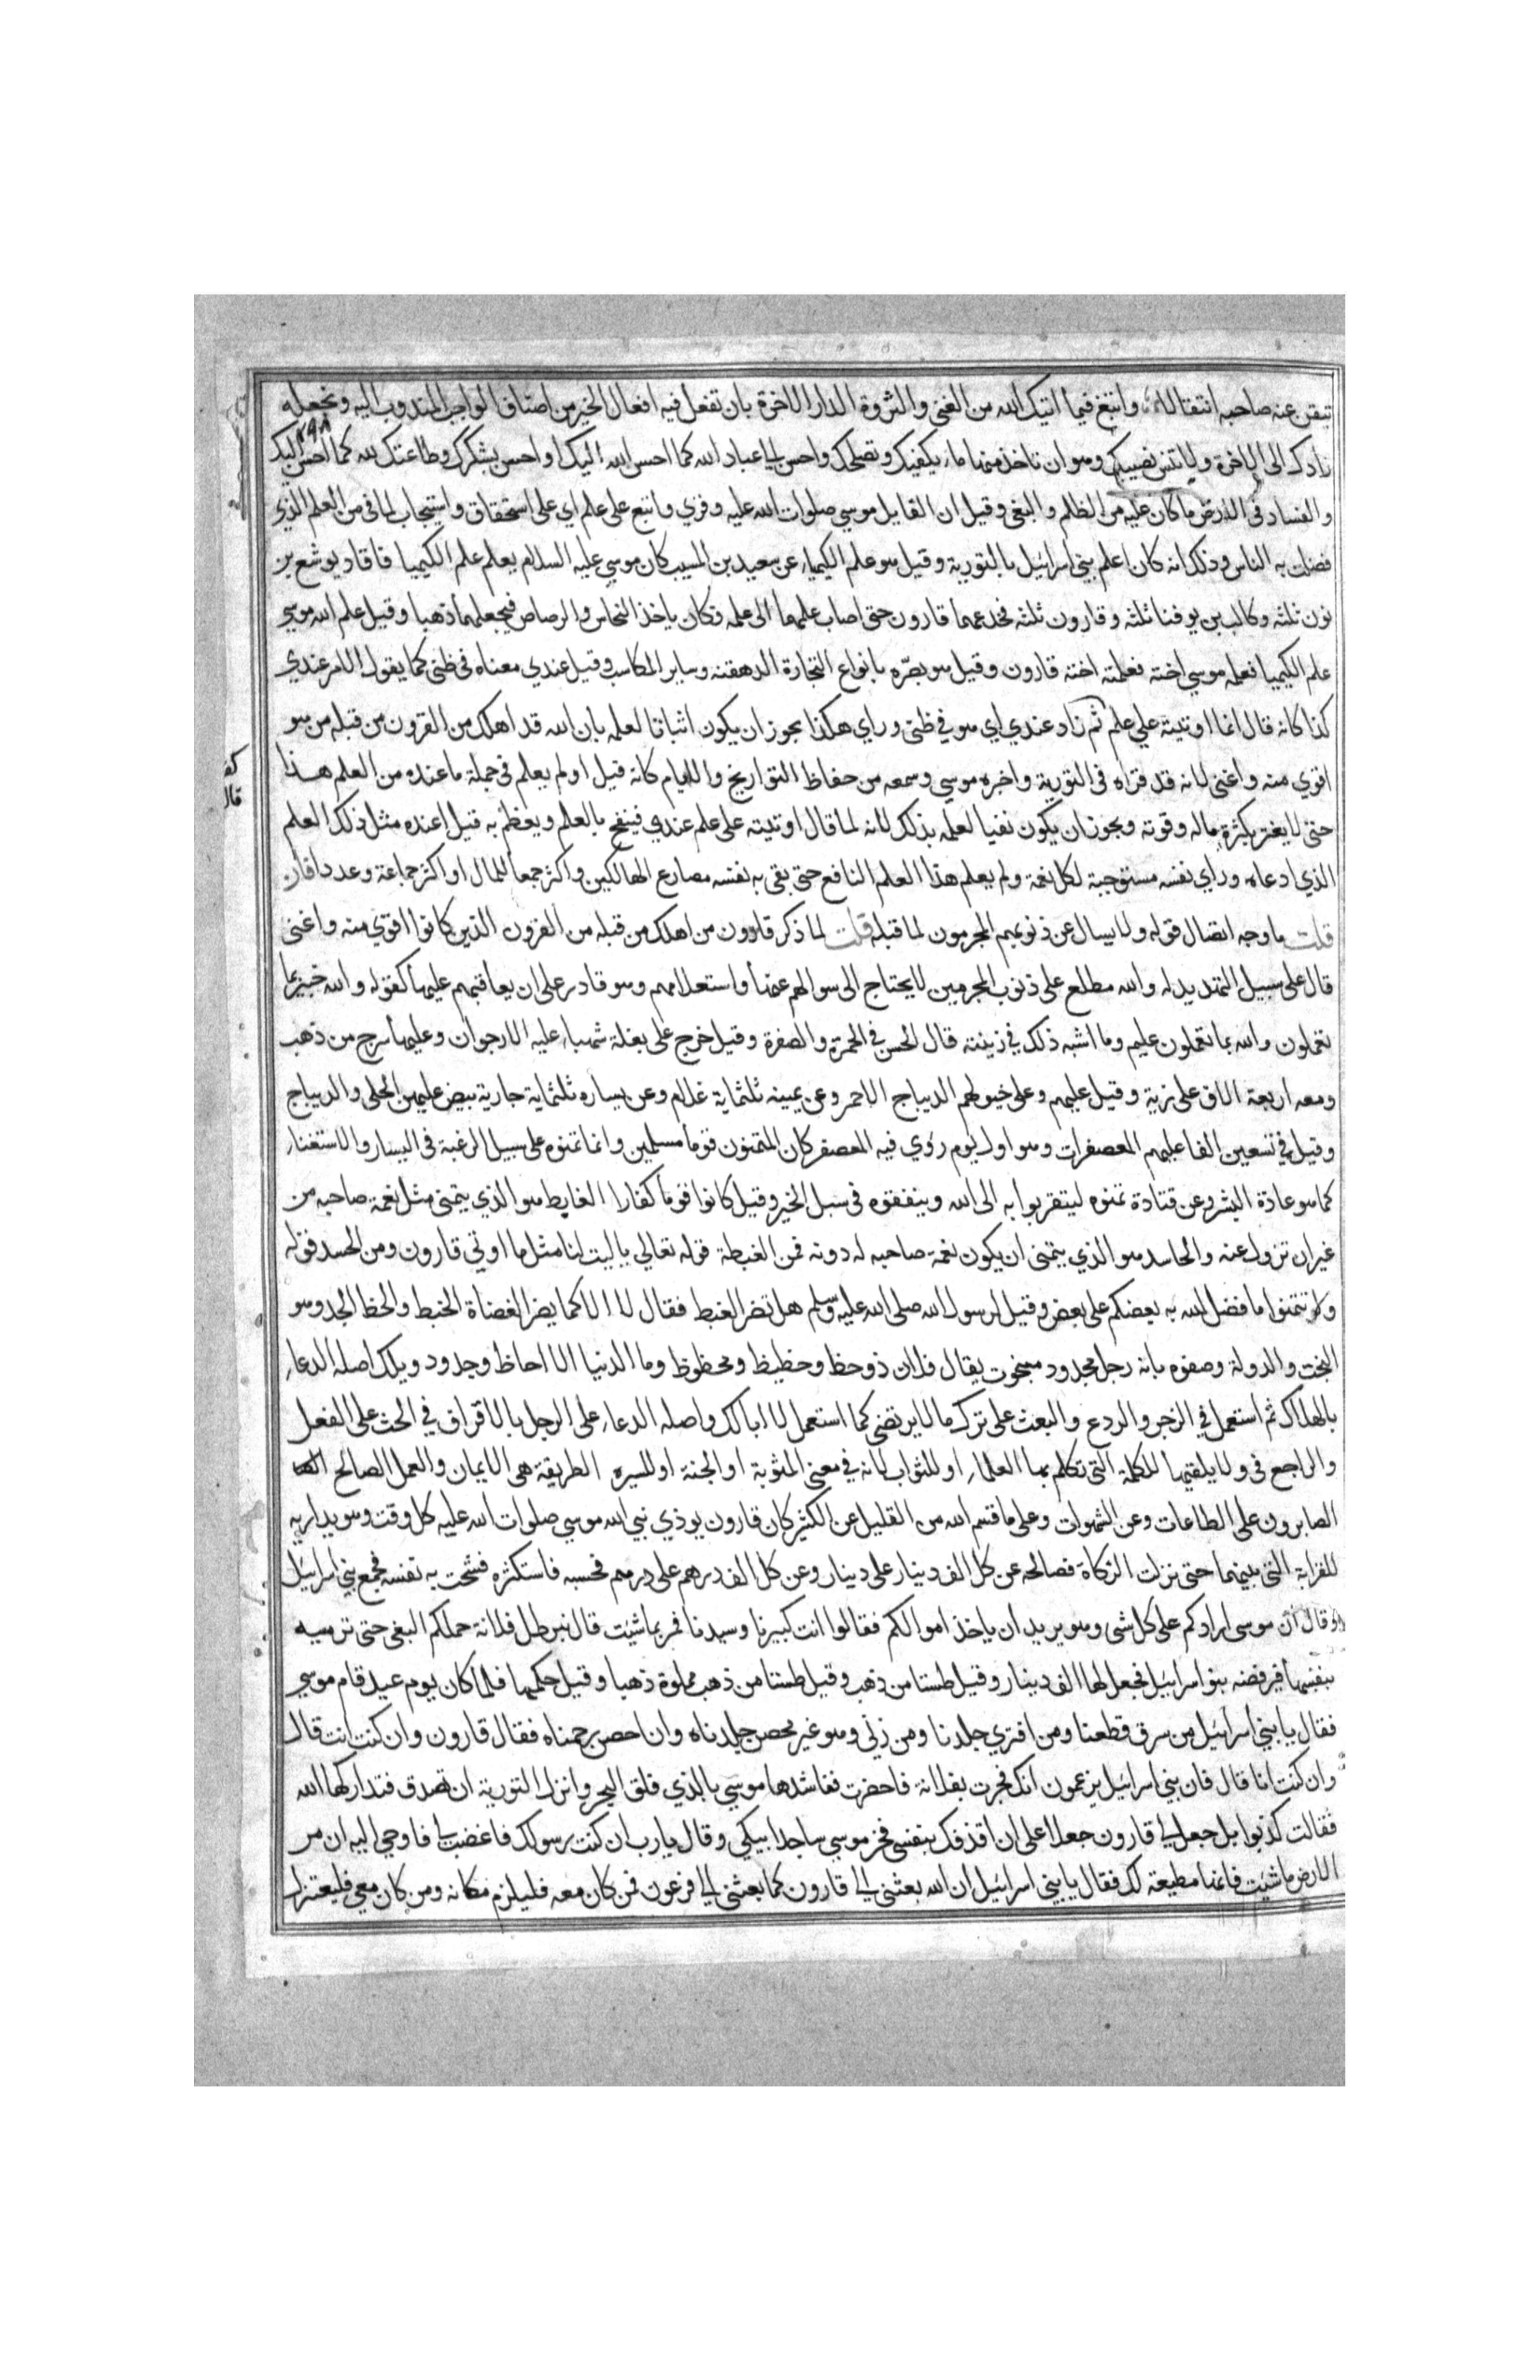 تيقن عنه صاحبه انتقالا وابتغ فيما اتيك الله من الغنى والثروة الدار الاخرة بان تفعل فيه افعال الخير من اصناف الواجب المندوب اليه وتجعله
زادك الى الاخرة ولا تنس نصيبك وهو ان تاخذ منها ما يكفيك ويصلحك واحسن الى عباد الله كما احسن الله اليك او احسن بشكرك وطاعتك لله كما احسن اليك
والفساد فى الارض ما كان عليه من الظلم والبغى وقيل ان القايل موسى صلوات الله عليه وقري واتبع على علم اي على استحقاق واستيجاب لما فى من العلم الذي
فضلت به الناس وذلك انه كان اعلم بنى اسرائيل بالتورية وقيل هو علم الكيمياء عن سعيد بن المسيب كان موسى عليه السلام يعلم علم الكيميا فافاد يوشع بن
نون ثلثه وكالب بن يوفنا ثلثه وقارون ثلثه فخدعهما قارون حتى اصاب علمهما الى علمه فكان ياخذ النحاس والرصاص فيجعلهما ذهبا وقيل علم الله موسى
علم الكيميا فعلمه موسى اخته فعلمته اخته قارون وقيل هو بصره بانواع التجارة الدهقنه وساير المكاسب وقيل عندي معناه فى ظنى كما يقول الامر عندي
كذا كانه قال انما اوتيته على علم ثم زاد عندي اي هو فى ظنى وراي هكذا يجوز ان يكون اثباتا لعلمه بان الله قد اهلك من القرون من قبله من هو
اقوي منه واغنى لانه قد قراه فى التورية واخبره موسى وسمعه من حفاظ التواريخ والايام كانه قيل اولم يعلم فى جملة ما عنده من العلم هذا
حتى لا يغتر بكثرة ماله وقوته ويجوز ان يكون نفيا لعلمه بذلك لانه لما قال اوتيته على علم عندي فينفح بالعلم ويعظم به قيل اعنده مثل ذلك العلم
الذي ادعاه وراي نفسه مستوجبة لكل نعمة ولم يعلم هذا العلم النافع حتى يقى به نفسه مصارع الهالكين واكثر جمعا للمال او اكثر جماعة وعددا فان
قلت ما وجه اتصال قوله ولا يسال عن ذنوبهم المجرمون لما قبله قلت لما ذكر قارون من اهلك من قبله من القرون الذين كانوا اقوي منه واغنى
قال على سبيل التهديد له والله مطلع على ذنوب المجرمين لا يحتاج الى سوالهم عنها واستعلامهم وهو قادر على ان يعاقبهم عليها كقوله والله خبير بما
تعملون والله بما تعملون عليم وما اشبه ذلك فى زينته قال الحسن فى الحمرة والصفرة وقيل خرج على بغلة شهباء عليه الارجوان وعليها سرج من ذهب
ومعه اربعة الاف على زية وقيل عليهم وعلى خيولهم الديباج الاحمر وعن يمينه ثلثماية غلام وعن يساره ثلثماية جارية بيض عليهن الحلى والديباج
وقيل فى تسعين الفا عليهم المعصفرات وهو اول يوم رؤي فيه المعصفر كان المتمنون قوما مسلمين وانما تمنوه على سبيل الرغبة فى اليسار والاستغناء
كما هو عادة البشر وعن قتادة تمنوه ليتقربوا به الى الله وينفقوه فى سبل الخير وقيل كانوا قوما كفارا الغابط هو الذي يتمنى مثل نعمة صاحبه من
غير ان تزول عنه والحاسد هو الذي يتمنى ان يكون نعمة صاحبه له دونه فمن الغبطة قوله تعالى يا ليت لنا مثل ما اوتى قارون ومن الحسد قوله
ولا تتمنوا ما فضل الله به بعضكم على بعض وقيل لرسول الله صلى الله عليه وسلم هل تضر الغبط فقال لا الا كما يضر الغضاة الخبط والحظ الجد وهو
البخت والدولة وصفوه بانه رجل مجدود مبخوت يقال فلان ذو حظ وحظيظ ومحظوظ وما الدنيا الا احاظ وجدود ويلك اصله الدعاء
بالهلاك ثم استعمل فى الزجر والردع والبعث على ترك ما لا يرتضى كما استعمل لا ابا لك واصله الدعاء على الرجل بالاقراف فى الحث على الفعل
والراجع فى ولا يلقيها للكلمة التى تكلم بها العلماء او للثواب لانه فى معنى المثوبة او الجنة او للسيره الطريقة هى الايمان والعمل الصالح
الصابرون على الطاعات وعن الشهوات وعلى ما قسم الله من القليل عن الكثير كان قارون يوذي نبى الله موسى صلوات الله عليه كل وقت وهو يداريه
للقرابة التى بينهما حتى نزلت الزكاة فصالحه عن كل الف دينار على دينار وعن كل الف درهم على درهم فحسبه فاستكثره فشحت به نفسه فجمع بنى اسرائيل
وقال ان موسى ارادكم على كل شى وهو يريد ان ياخذ اموالكم فقالوا انت كبيرنا وسيدنا فمر بما شئت قال نبرطل فلانة حملكم البغى حتى ترميه
بنفسها فيرفضه بنو اسرائيل فجعل لها الف دينار وقيل طستا من ذهب وقيل طستا من ذهب مملوة ذهبا وقيل حكمها فلما كان يوم عيد قام موسى
فقال يا بنى اسرائيل من سرق قطعنا ومن افترى جلدنا ومن زنى وهو غير محصن جلدناه وان احصن رجمناه فقال قارون وان كنت انت قال
وان كنت انا قال فان بنى اسرائيل يزعمون انك فجرت بفلانة فاحضرت فناشدها موسى بالذي فلق البحر وانزل التورية ان تصدق فتداركها الله
فقالت كذبوا بل جعل لى قارون جعلا على ان اقذفك بنفسى فخر موسى ساجدا يبكى وقال يا رب ان كنت رسولك فاغضب لى فاوحى اليه ان مر
الارض ما شئت فانها مطيعة لك فقال يا بنى اسرائيل ان الله بعثنى الى قارون كما بعثنى الى فرعون فمن كان معه فليلزم مكانه ومن كان معى فليعتزل